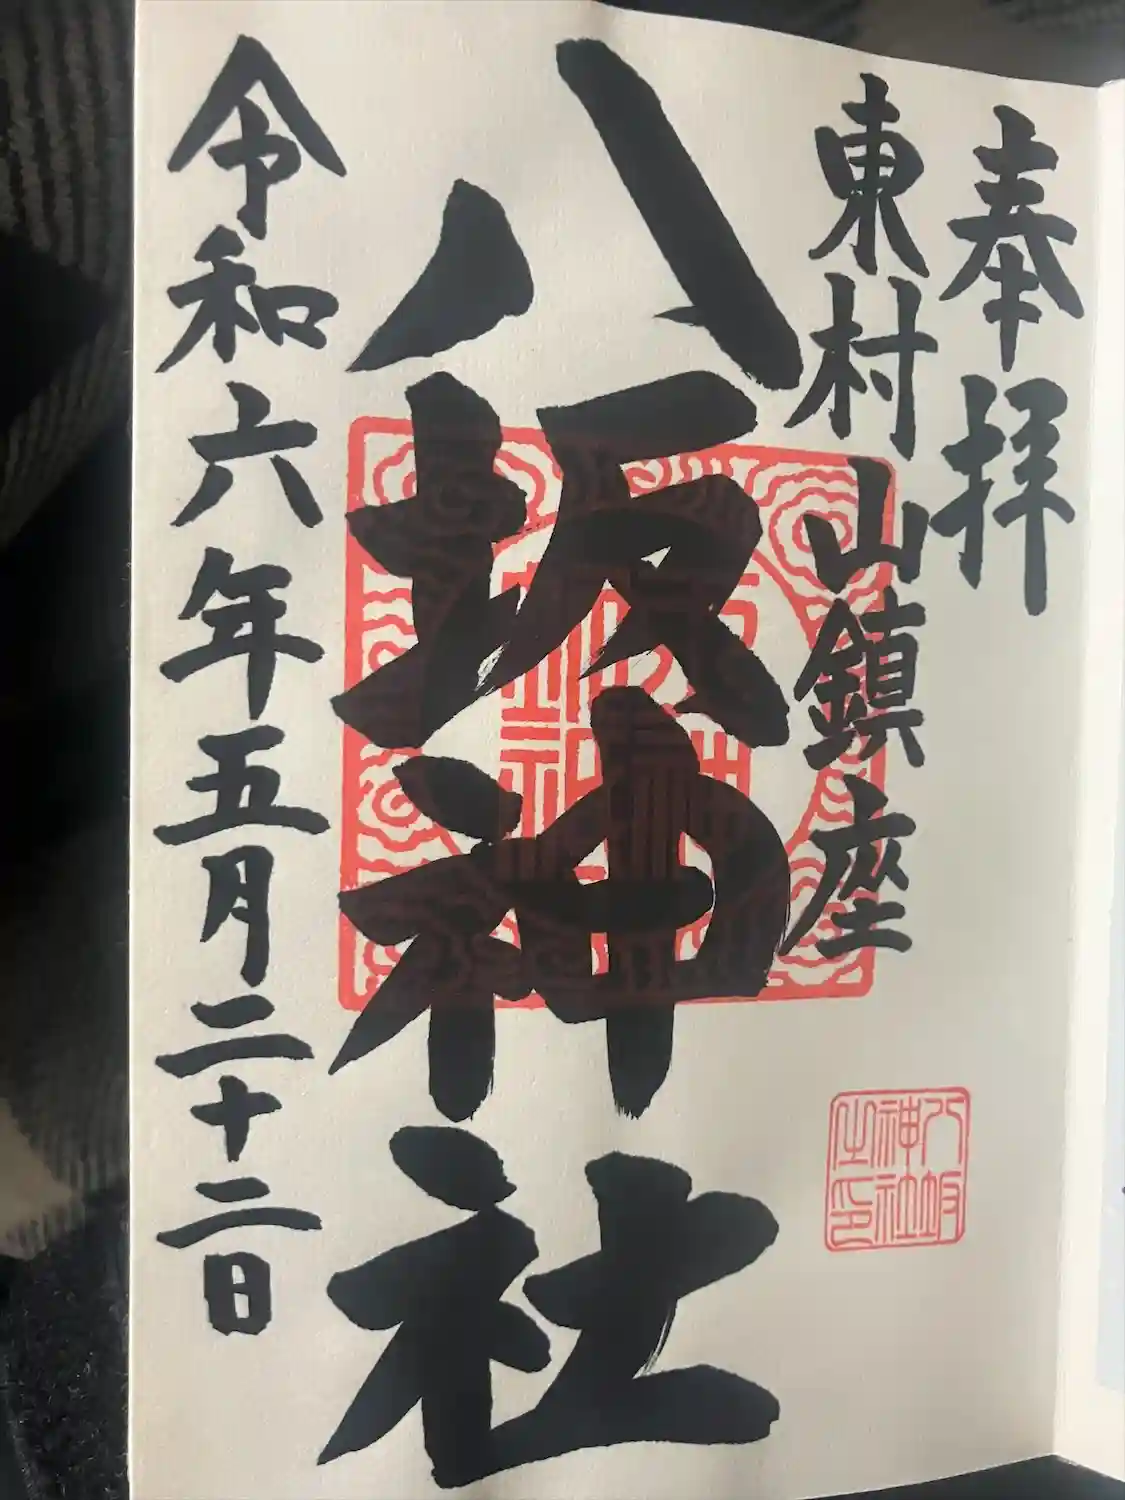 奉拝
東村山鎮座
八坂神社
令和六年五月二十二日
八坂
神社
之印